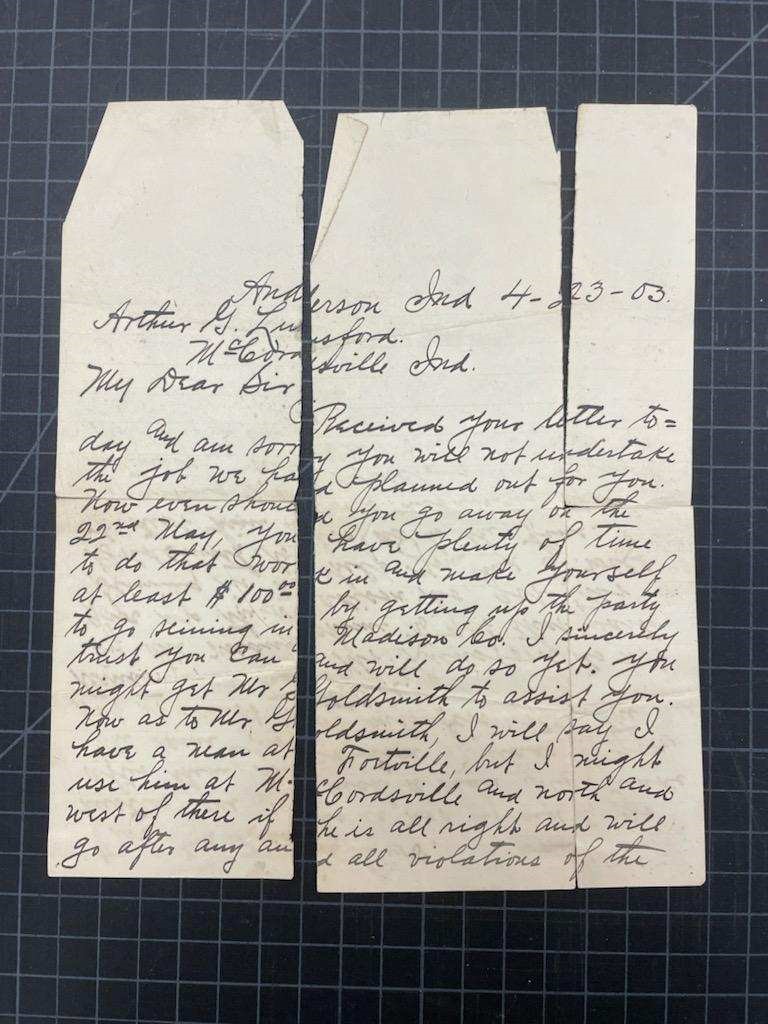 Anderson Ind 4-23-03.
Arthur G. Lunsford.
McCordsville Ind.
My Dear Sir
Received your letter to=
day and am sorry you will not undertake
the job we had planned out for you.
Now even should you go away on the
22nd May, you have plenty of time
to do that work in and make yourself
at least $100.00 by getting up the party
to go seining in Madison Co. I sincerely
trust you can and will do so yet. You
might get Mr Goldsmith to assist you.
Now as to Mr. Goldsmith, I will say I
have a man at Fortville, but I might
use him at McCordsville and north and
west of there if he is all right and will
go after any and all violations of the